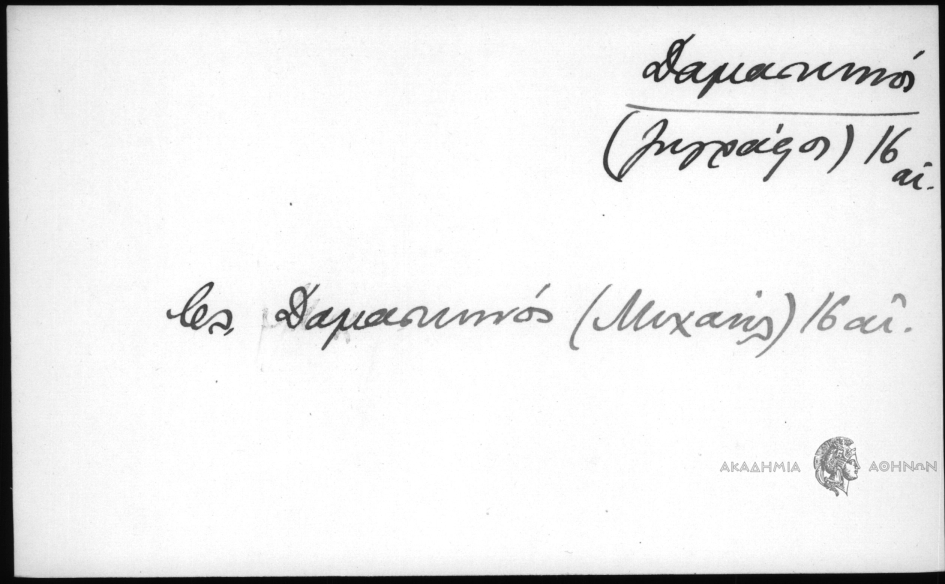 Δαμασκηνός
(ζωγράφος) 16
αἰ.
Δαμασκηνός (Μιχαήλ) 16 αἰ.
ΑΚΑΔΗΜΙΑ ΑΘΗΝΩΝ